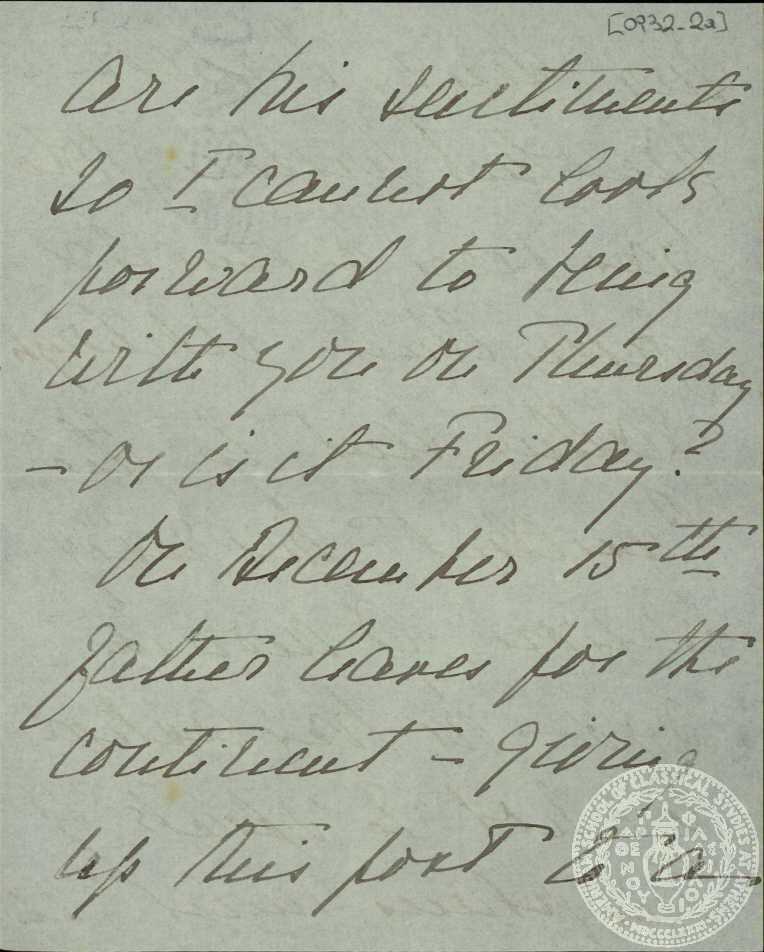 [0932-2a]
are his sentiments
so I cannot look
forward to being
with you on Thursday
- or is it Friday?
On December 15th
father leaves for the
continent - giving
up this post
AMERICAN SCHOOL OF CLASSICAL STUDIES AT ATHENS
MDCCCLXXXI